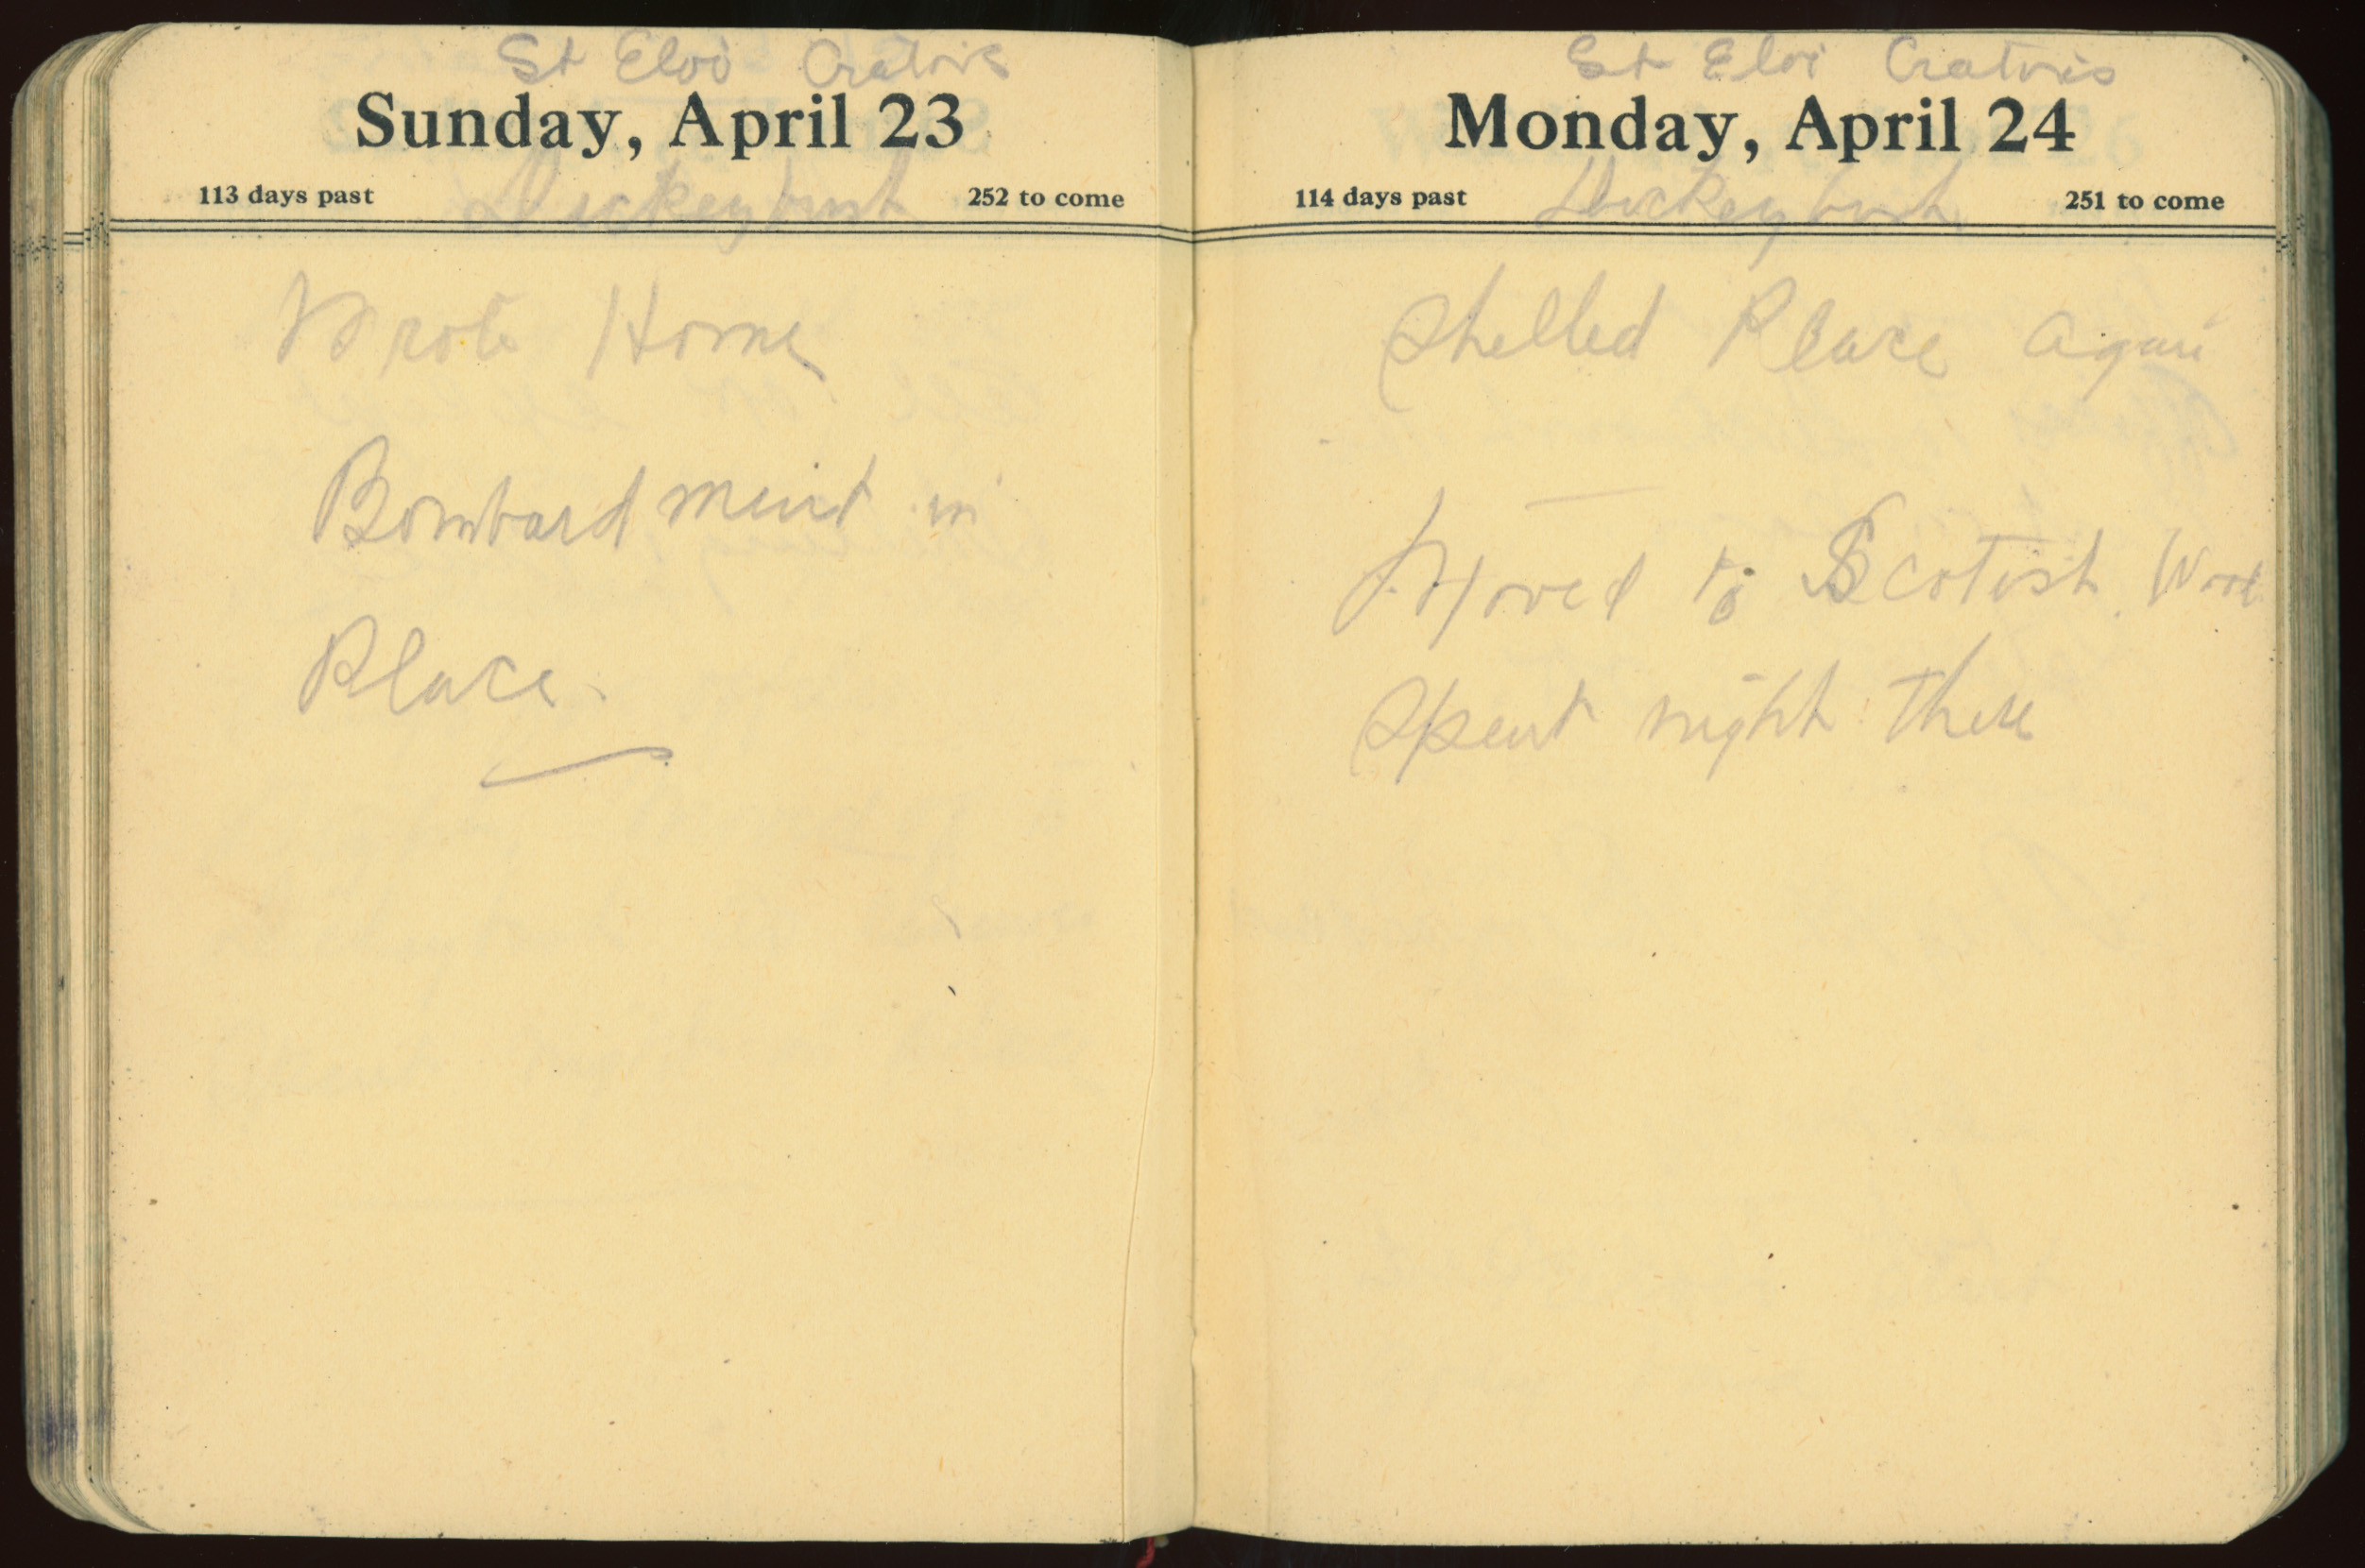 St Eloi Crators
Sunday, April 23
113 days past Dickeybush 252 to come
Wrote Home
Bombardment in
Place.
St Eloi Crators
Monday, April 24
114 days past Dickeybush 251 to come
Shelled Place again
Moved to Scotish Wood
Spent night there